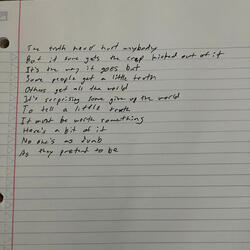 The truth never hurt anybody
But it sure gets the crap kicked out of it
It's the way it goes but
Some people get a little truth
Others get all the world
It's surprising some give up the world
To tell a little truth
It must be worth something
Here's a bit of it
No one's as dumb
As they pretend to be